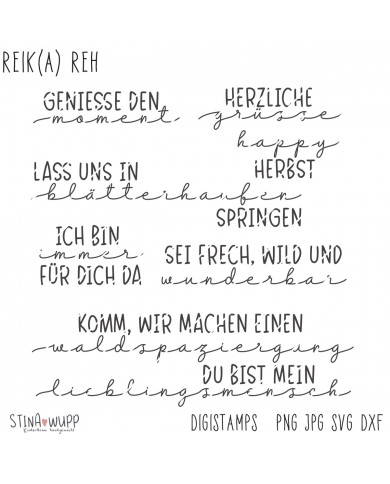 REIK(A) REH
GENIESSE DEN
moment
HERZLICHE
grüsse
happy
HERBST
LASS UNS IN
blätterhaufen
SPRINGEN
ICH BIN
immer
FÜR DICH DA
SEI FRECH, WILD UND
wunderbar
KOMM, WIR MACHEN EINEN
waldspaziergung
DU BIST MEIN
lieblingsmensch
STINA WUPP
DIGISTAMPS PNG JPG SVG DXF